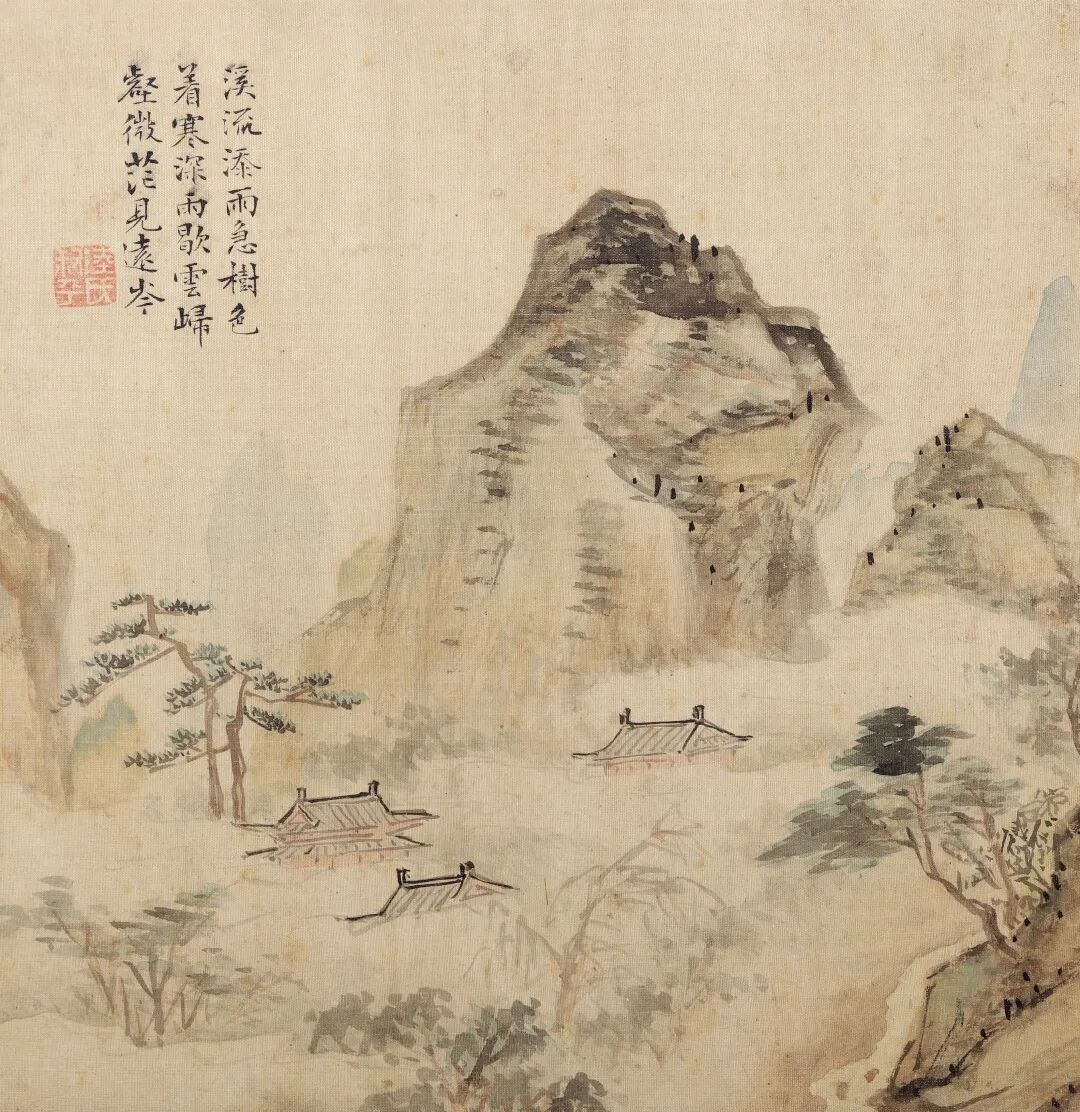 溪流添雨急樹色
着寒深雨歇雲歸
壑微茫見遠岑